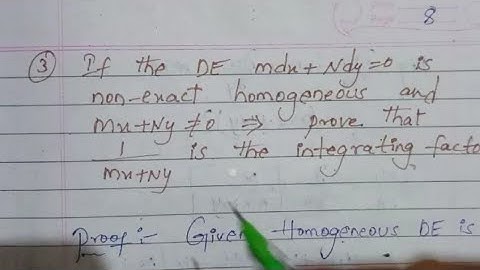 8
③ If the DE mdx + Ndy = 0 is
non-exact homogeneous and
mx + Ny ≠ 0 ⇒ prove that
1/(mx+Ny) is the integrating facto
Proof :- Given Homogeneous DE is